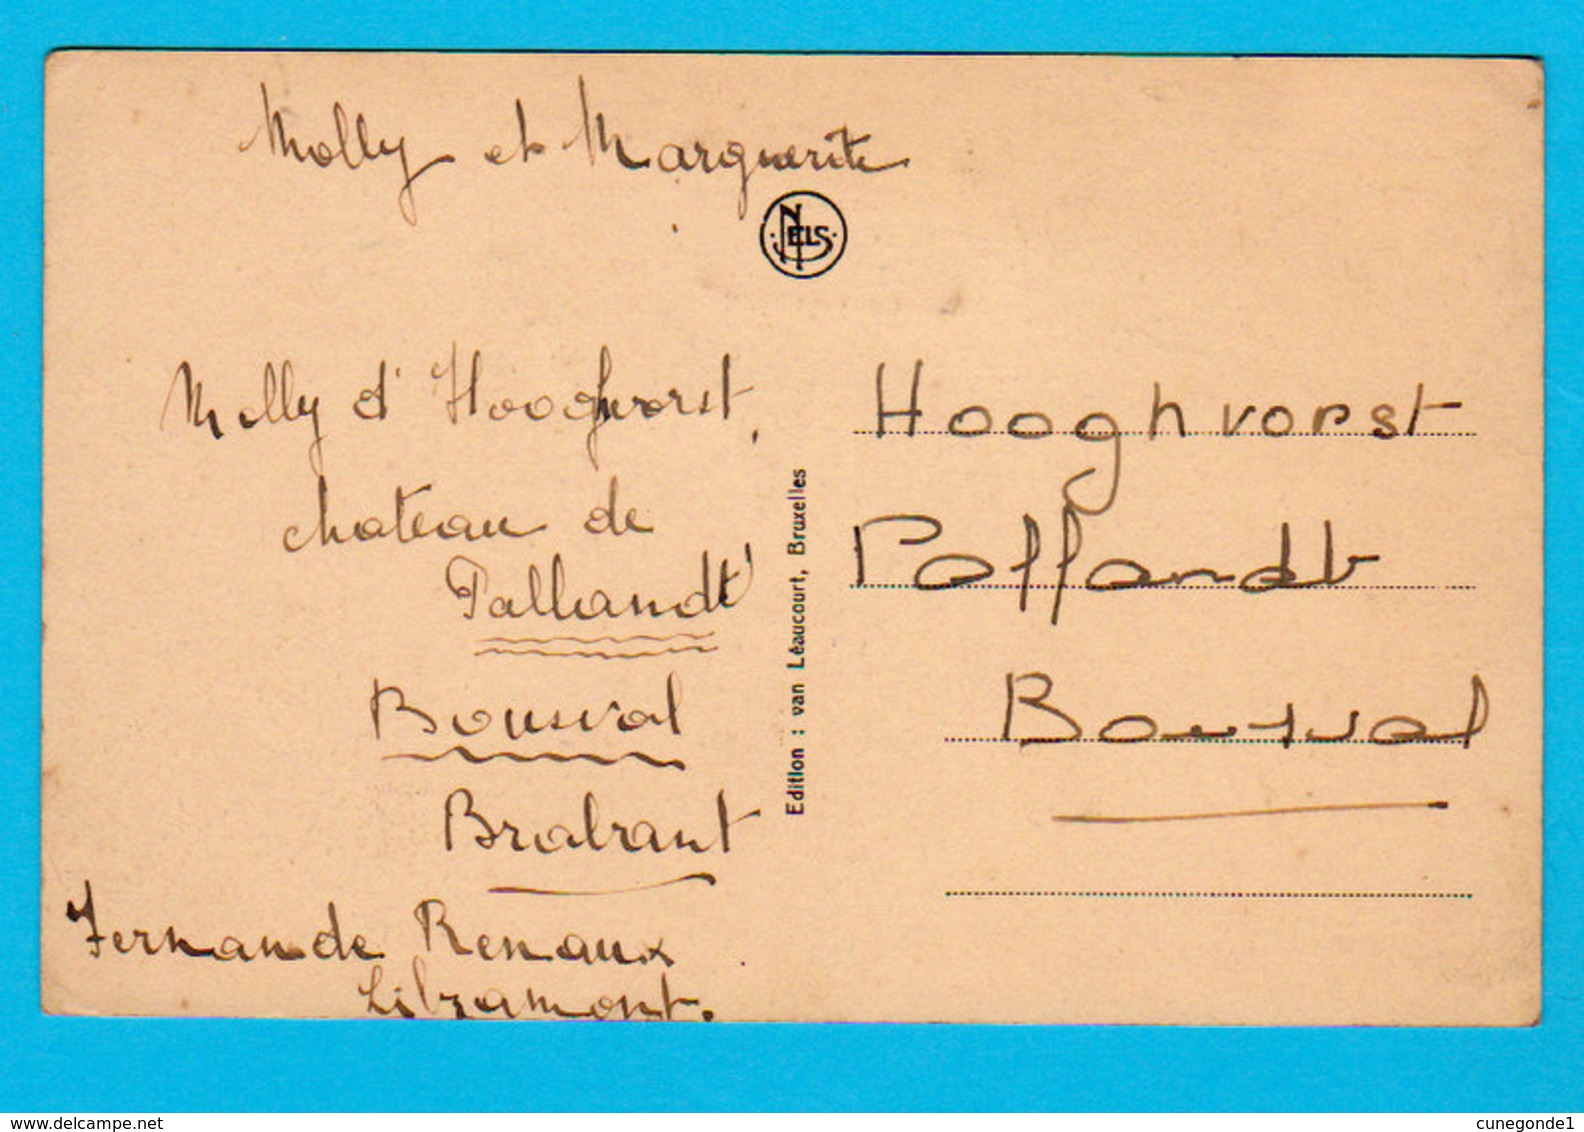 Molly et Marguerite
NELS
Molly d'Hooghvorst,
chateau de
Pallandt
Bousval
Brabant
Fernande Renaux
Libramont.
Edition : van Léaucourt, Bruxelles
Hooghvorst
Pallandt
Bousval
delcampe.net
cunegonde1